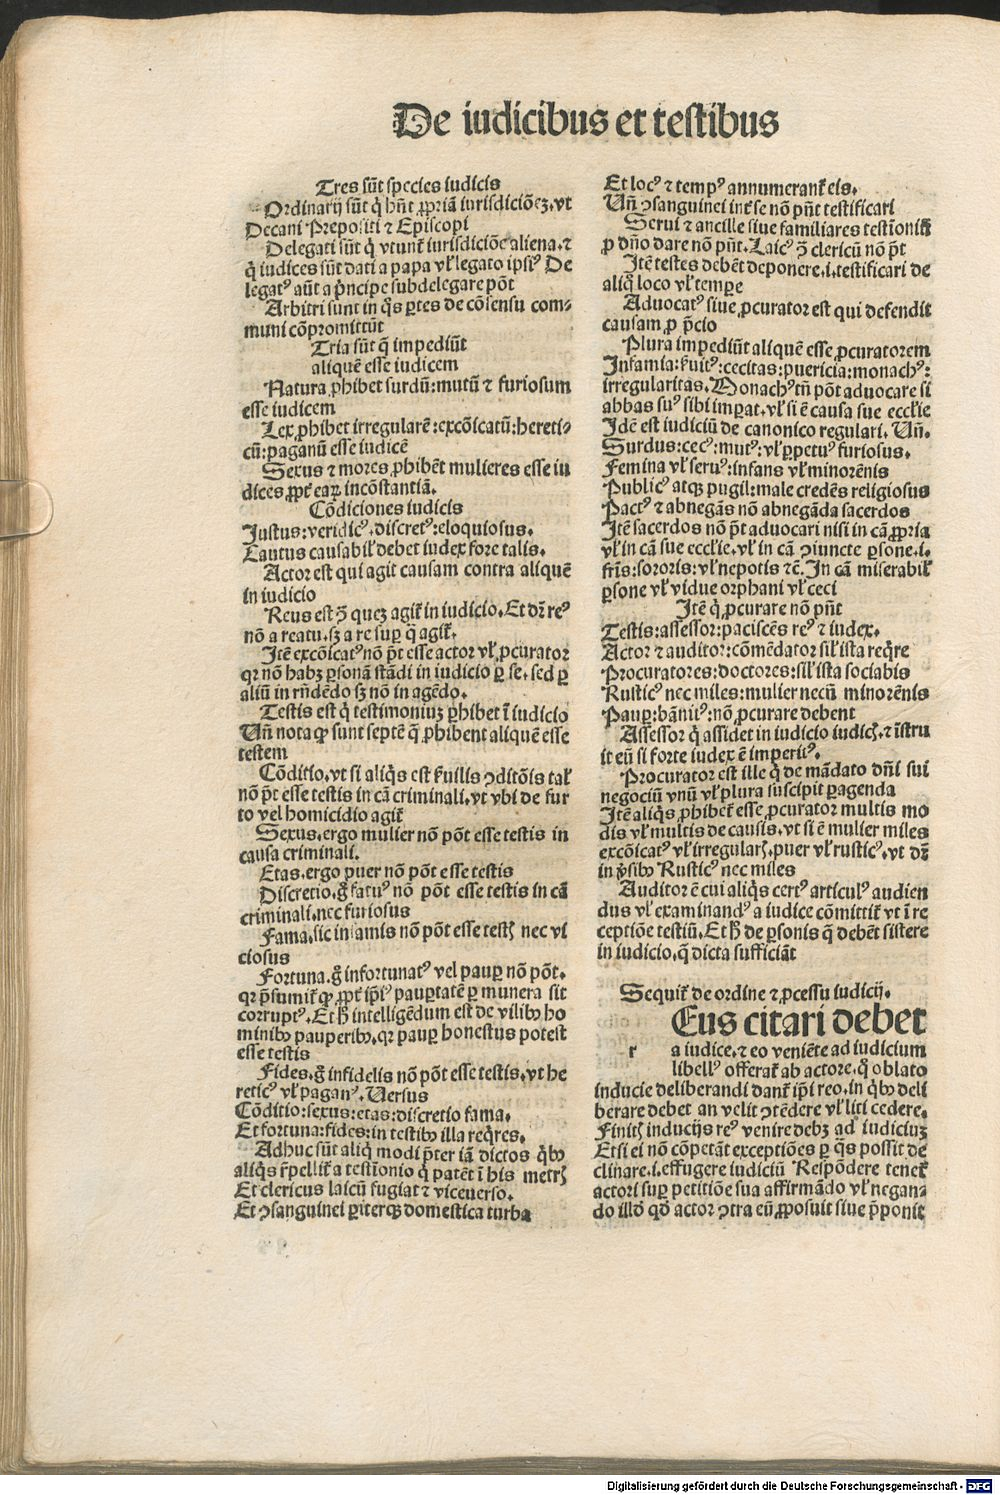 De iudicibus et testibus
Tres sũt species iudicis
Ordinarij sũt q̇ hñt ꝓpriã iurisdiciõeꝫ, vt
Decani Prepositi ⁊ Episcopi
Delegati sũt q̇ vtunt᷑ iurisdiciõe aliena. ⁊
q̇ iudices sũt dati a papa vľ legato ipsiꝰ De
legatꝰ aũt a p̃ncipe subdelegare põt
Arbitri sunt in q̇s ꝑtes de cõsensu com⸗
muni cõpromittũt
Tria sũt q̃ impediũt
aliquẽ esse iudicem
Natura ꝓhibet surdũ: mutũ ⁊ furiosum
esse iudicem
Lex ꝓhibet irregularẽ: excõicatũ: hereti⸗
cũ: paganũ esse iudicẽ
Sexus ⁊ mores ꝓhibẽt mulieres esse iu
dices ꝓpt᷑ eaꝝ incõstantiã.
Cõdiciones iudicis
Justus: veridicꝰ. discretꝰ: eloquiosus.
Lautus causabiľ debet iudex fore talis.
Actor est qui agit causam contra aliquẽ
in iudicio
Reus est ↄ̃ quez agit᷑ in iudicio. Et dr̃ reꝰ
nõ a reatu. sꝫ a re suꝑ q̃ agit᷑.
Itẽ excõicatꝰ nõ p̃t esse actor vľ ꝓcurator
qr nõ habꝫ ꝑsonã stãdi in iudicio ꝑ se. sed ꝑ
aliũ in rñdẽdo sꝫ nõ in agẽdo.
Testis est q̇ testimoniuꝫ ꝑhibet ĩ iudicio
Uñ nota ꝙ sunt septẽ q̃ ꝓhibent aliquẽ esse
testem
Cõditio. vt si aliq̇s est ẜuilis ↄditõis taľ
nõ p̃t esse testis in cã criminali. vt vbi de fur
to vel homicidio agit᷑
Sexus. ergo mulier nõ põt esse testis in
causa criminali.
Etas. ergo puer nõ põt esse testis
Discretio. g̊ fatuꝰ nõ põt esse testis in cã
criminali. nec furiosus
Fama. sic infamis nõ põt esse testꝭ nec vi
ciosus
Fortuna. g̊ infortunatꝰ vel pauꝑ nõ põt.
qr p̃sumit᷑ ꝙ ꝓpt᷑ ip̃iꝰ pauꝑtatẽ ꝑ munera sit
corruptꝰ. Et h̃ intelligẽdum est de vilibꝰ ho
minibꝰ pauperibꝰ. qr pauꝑ honestus potest
esse testis
Fides. g̊ infidelis nõ põt esse testis. vt he
reticꝰ vľ paganꝰ. Uersus
Cõditio: sexus: etas: discretio fama.
Et fortuna: fides: in testibꝰ illa reqr̃es.
Adhuc sũt aliq̇ modi p̃ter iã dictos q̇bꝰ
aliq̇s r̃pellit᷑ a testĩonio q̇ patẽt ĩ his metrꝭ
Et clericus laicũ fugiat ⁊ viceuerso.
Et ↄsanguinei ꝑiterqꝫ domestica turba
Et locꝰ ⁊ tempꝰ annumerant᷑ eis.
Uñ ↄsanguinei int᷑ se nõ pñt testificari
Serui ⁊ ancille siue familiares testĩoniũ
ꝓ dño dare nõ pñt. Laicꝰ ↄ̃ clericũ nõ p̃t
Itẽ testes debẽt deponere. i. testificari de
aliq̊ loco vľ tempore
Aduocatꝰ siue ꝓcurator est qui defendit
causam ꝓ p̃cio
Plura impediũt aliquẽ esse ꝓcuratorem
Infamia: ẜuitꝰ: cecitas: puericia: monachꝰ:
irregularitas. Monachꝰ tñ põt aduocare si
abbas suꝰ sibi imꝑat. vľ si ẽ causa sue ecclie
Idẽ est iudiciũ de canonico regulari. Uñ.
Surdus: cecꝰ: mutꝰ: vľ ꝑpetuꝰ furiosus.
Femina vľ seruꝰ: infans vľ minorẽnis
Publicꝰ atqꝫ pugil: male credẽs religiosus
Pactꝰ ⁊ abnegãs nõ abnegãda sacerdos
Itẽ sacerdos nõ p̃t aduocari nisi in cã ꝓpria
vľ in cã sue ecclie. vľ in cã ↄiuncte ꝑsone. i.
fr̃is: sororis: vľ nepotis ⁊c̃. In cã miserabiľ
ꝑsone vľ vidue orphani vľ ceci
Itẽ q̇ ꝓcurare nõ pñt
Testis: assessor: paciscẽs reꝰ ⁊ iudex.
Actor ⁊ auditor: cõmẽdator siľ ista reqr̃e
Procuratores: doctores: siľ ista sociabis
Rusticꝰ nec miles: mulier necũ minorẽnis
Pauꝑ: bãnitꝰ: nõ ꝓcurare debent
Assessor q̇ assidet in iudicio iudicꝭ. ⁊ ĩstru
it eũ si forte iudex ẽ imperitꝰ.
Procurator est ille q̇ de mãdato dñi sui
negociũ vnũ vľ plura suscipit ꝑagenda
Itẽ aliq̇s ꝓhibet᷑ esse ꝓcurator multis mo
dis vľ multis de causis. vt si ẽ mulier miles
excõicatꝰ vľ irregularꝭ. puer vľ rusticꝰ. vt dr̃
in ṽsibꝰ Rusticꝰ nec miles
Auditor ẽ cui aliq̇s certꝰ articulꝰ audien
dus vľ examinandꝰ a iudice cõmittit᷑ vt ĩ re
ceptiõe testiũ. Et h̃ de ꝑsonis q̃ debẽt sistere
in iudicio. q̃ dicta sufficiãt
Sequit᷑ de ordine ⁊ ꝓcessu iudicij.
r
Eus citari debet
a iudice. ⁊ eo veniẽte ad iudicium
libellꝰ offerat᷑ ab actore. q̊ oblato
inducie deliberandi dant᷑ ip̃i reo. in q̇bꝰ deli
berare debet an velit ↄtẽdere vľ liti cedere.
Finitꝭ inducijs reꝰ venire debꝫ ad iudiciuꝫ
Et si ei nõ cõpetãt exceptiões ꝑ q̃s possit de
clinare. i. effugere iudiciũ Respõdere tenet᷑
actori suꝑ petitiõe sua affirmãdo vľ negan⸗
do illđ qđ actor ↄtra eũ ꝓposuit siue p̃ponit
Digitalisierung gefördert durch die Deutsche Forschungsgemeinschaft - DFG